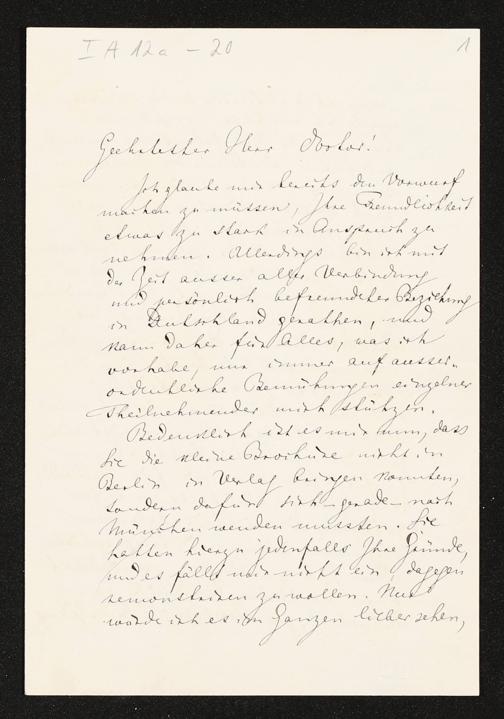 I A 12a - 20
1
Geehrtester Herr Doctor!
Ich glaube mir bereits den Vorwurf
machen zu müssen, Ihre Freundlichkeit
etwas zu stark in Anspruch zu
nehmen. Allerdings bin ich mit
der Zeit ausser aller Verbindung
und persönlich befreundeter Beziehung
in Deutschland gerathen, und
kann daher für Alles, was ich
vorhabe, nur immer auf ausser-
ordentliche Bemühungen einzelner
Theilnehmender mich stützen.
Bedenklich ist es mir nun, dass
Sie die kleine Brochüre nicht in
Berlin in Verlag bringen konnten,
sondern dafür sich - gerade - nach
München wenden mussten. Sie
hatten hierzu jedenfalls Ihre Gründe,
und es fällt mir nicht ein, dagegen
remonstriren zu wollen. Nur
würde ich es im Ganzen lieber sehen,